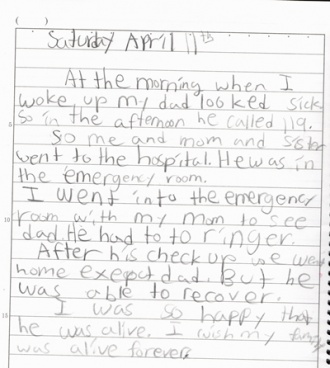 ( )
Saturday April 11th
At the morning when I
woke up my dad looked sick
So in the afternoon he called 119.
So me and mom and sister
went to the hospital. He was in
the emergency room.
I went into the emergency
room with my mom to see
dad. He had to to ringer.
After his check up we went
home exepct dad. But he
was able to recover.
I was so happy that
he was alive. I wish my family
was alive forever.
5
10
15